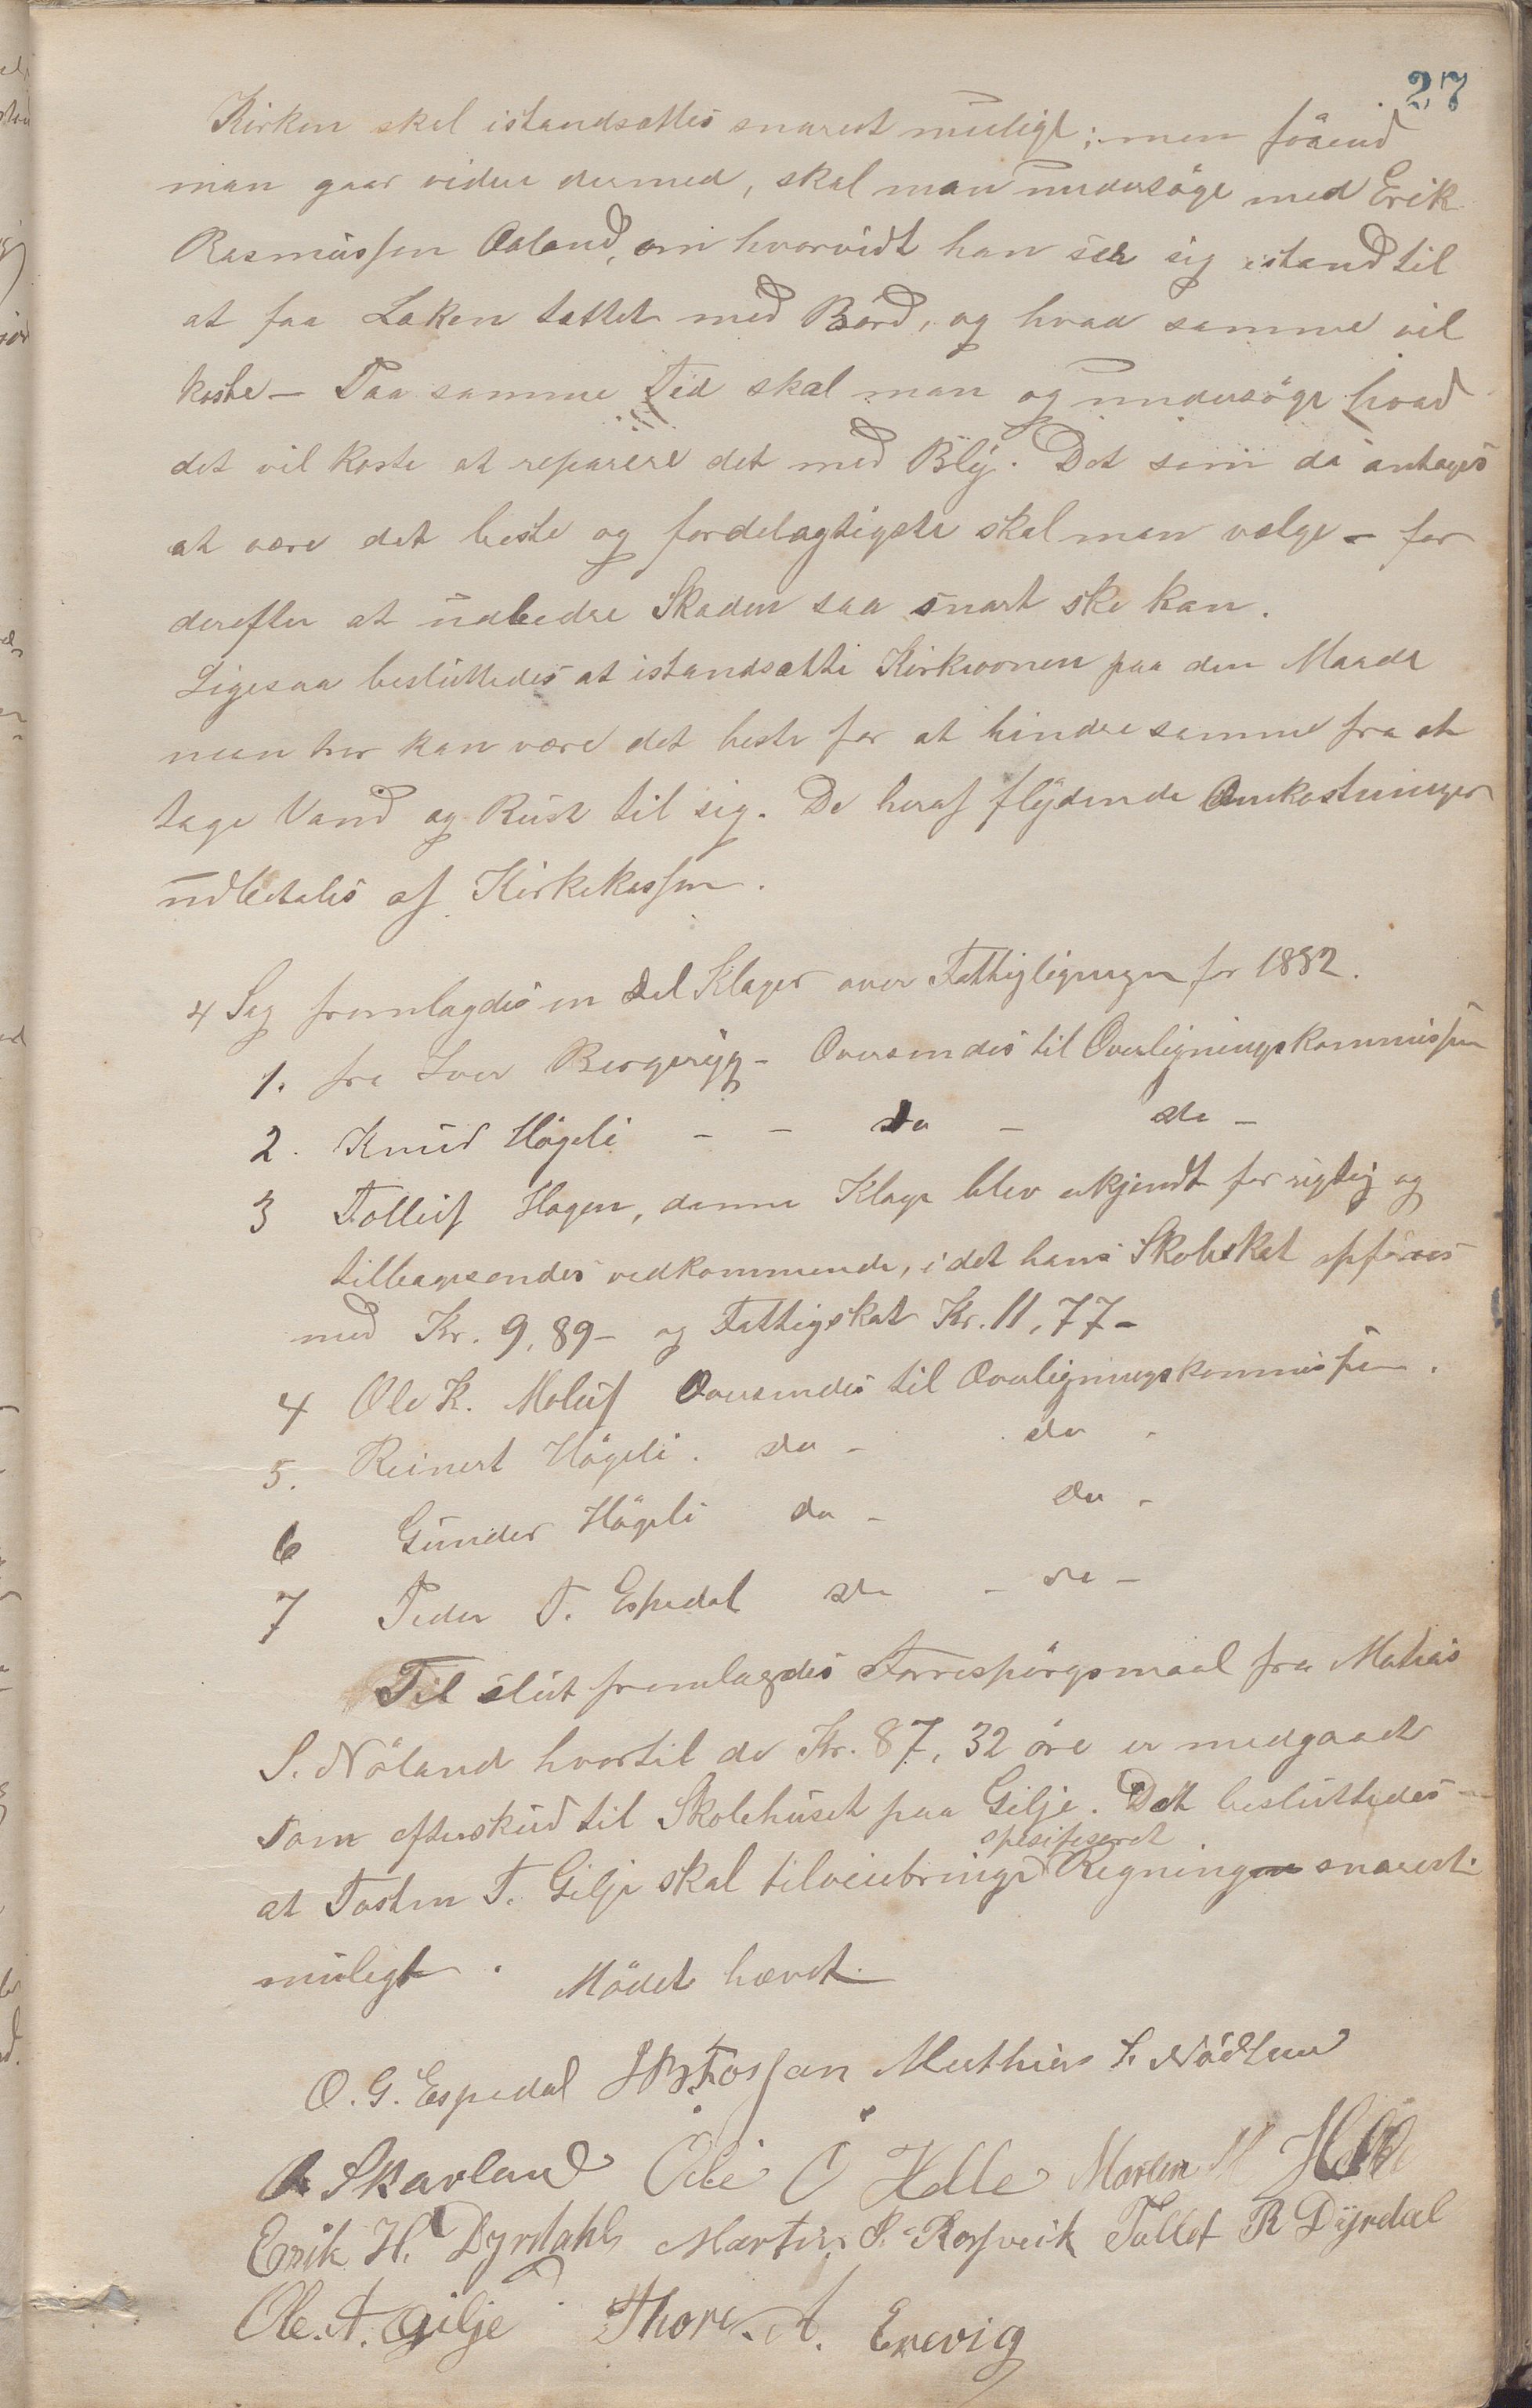 27
Kirken skal istandsættes snarest muligt; men förend
man gaar videre dermed, skal man undersöge med Erik
Rasmussen Aaland, om hvorvidt han ser sig istand til
at faa Laken tættet med Bord, og hvad samme vil
koste – Paa samme Tid skal man og undersöge hvad
det vil koste at reparere det med Bly. Det som da antages
at være det beste og fordelagtigste skal man vælge – for
derefter at udbedre Skaden saa snart ske kan.
Ligesaa besluttedes at istandsætte Kirkeovnen paa den Maade
man tror kan være det beste for at hindre samme fra at
tage Vand og Rust til sig. De heraf flydende Omkostninger
udbetales af Kirkekassen.
4 Sag fremlagdes en Del Klager over Fattigligningen for 1882.
1. fra Iver Bergeryg – Oversendes til Overligningskommissen
2. Knud Högeli – – do – do –
3 Tolleif Hagen, denne Klage blev erkjendt for rigtig og
tilbagesendes vedkommende, i det hans Skoleskat opföres
med Kr. 9,89 – og Fattigskat Kr. 11,77 –
4 Ole K. Moluf Oversendes til Overligningskommissen.
5. Reinert Högeli. do – do –
6 Gunder Högeli do – do –
7 Peder T. Espedal do – do –
Til slut fremlagdes Forrespörgsmaal fra Matias
S. Nöland hvortil de Kr. 87,32 öre er medgaaet
som efterskud til Skolehuset paa Gilje. Det besluttedes
spesifiseret
at Tosten T. Gilje skal tilveiebringe Regningen snarest
muligt. Mödet hævet.
O. G. Espedal Fossan Mathias S. Nödland
Skavland Ole O Helle Morten M Helle
Erik H. Dyrdahl Martin S. Rossveik Tollef R Dyrdal
Ole. T. Gilje Thore. A. Erevig